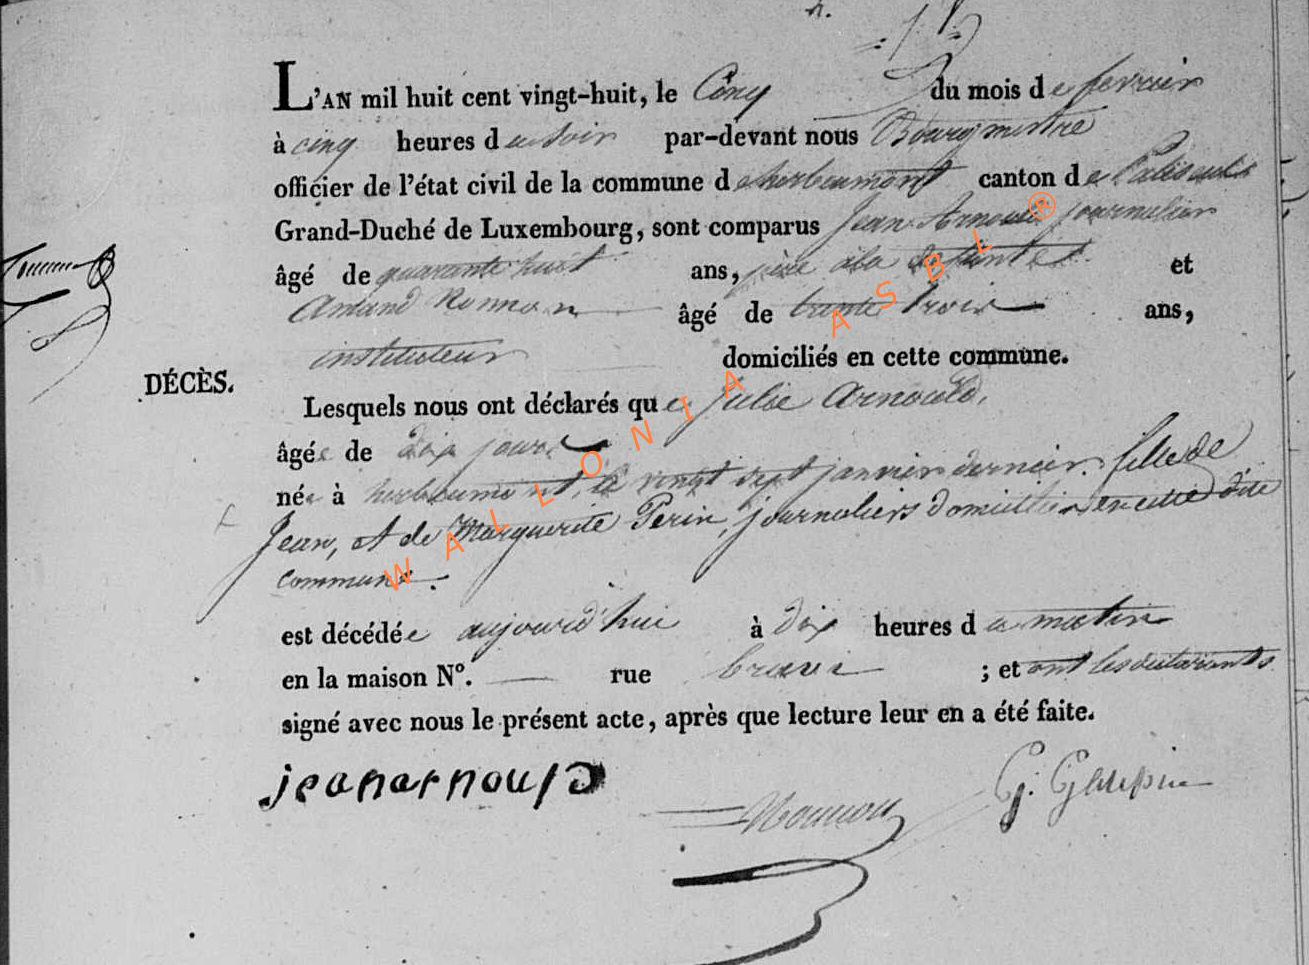 L'AN mil huit cent vingt-huit, le Cinq du mois de fevrier
à cinq heures du soir par-devant nous Bourgmestre
officier de l'état civil de la commune de herbeumont canton de Paliseul
Grand-Duché de Luxembourg, sont comparus Jean Arnould journalier
âgé de quarante huit ans, père à la défunte et
Amand Nonnon âgé de trente trois ans,
instituteur domiciliés en cette commune.
DÉCÈS.
Lesquels nous ont déclarés que Julie Arnould,
âgée de dix jours
née à herbeumont, le vingt sept janvier dernier. fille de
Jean, et de Marguerite Perin, journaliers domiciliés en cette dite
commune.
est décédée aujourd'hui à dix heures du matin
en la maison N°. — rue ; et ont les déclarants
signé avec nous le présent acte, après que lecture leur en a été faite.
jean arnould
Nonnon
WALLONIA ASBL ®